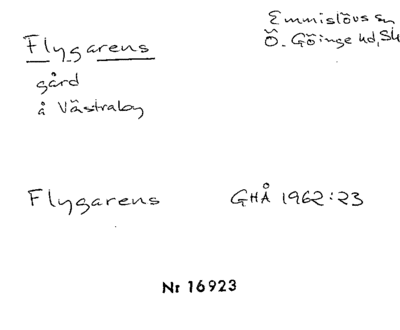 Flygarens
Emmislövs sn
Ö. Göinge hd, Sk
gård
å Västraby
Flygarens
GHÅ 1962:23
Nr 16923